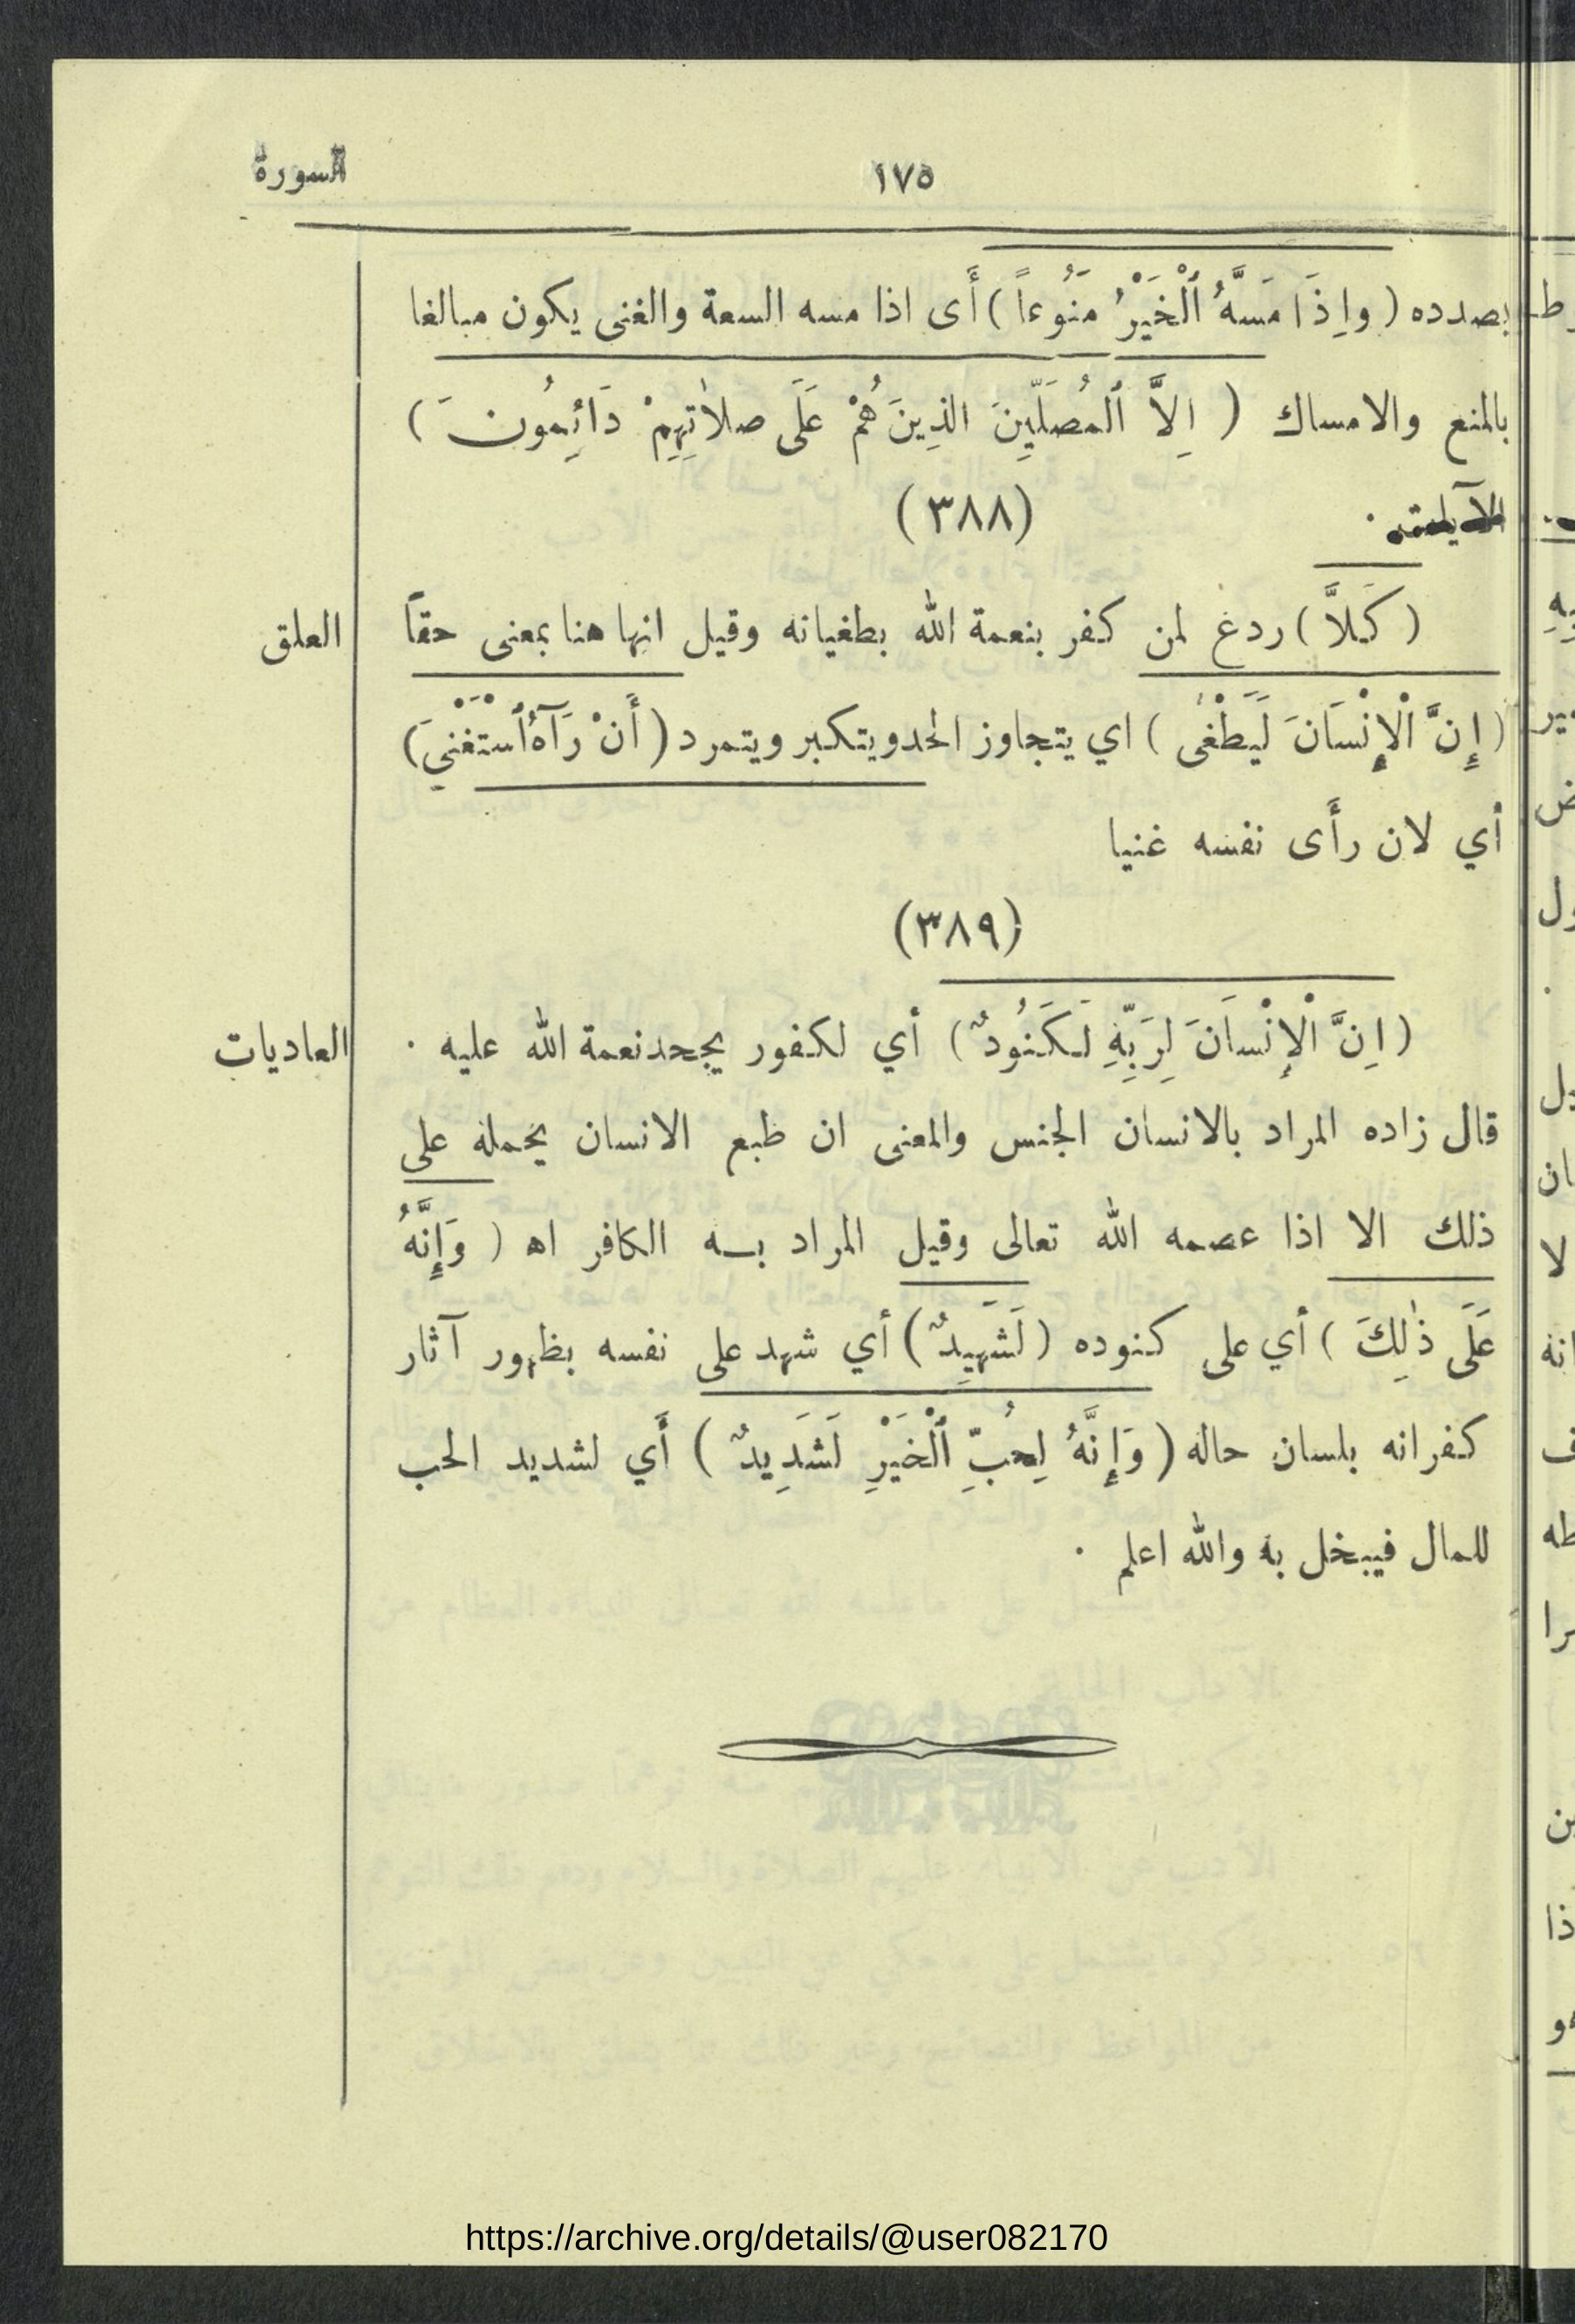 ١٧٥
السورة
بصدده ( وإِذَا مَسَّهُ ٱلْخَيْرُ مَنُوعاً ) أَى اذا مسه السعة والغنى يكون مبالغا
بالمنع والامساك ( اِلاَّ ٱلمُصَلِّينَ الذِينَ هُمْ عَلَى صلاٰتِهِمْ دَائِمُونَ )
(٣٨٨)
( كَلاَّ ) ردغ لمن كفر بنعمة الله بطغيانه وقيل انها هنا بمعنى حقاً
العلق
( إِنَّ الْإِنْسَانَ لَيَطْغٰى ) اي يتجاوز الحد ويتكبر ويتمرد ( أَنْ رَآهُ ٱسْتَغْنَى )
أي لان رأَى نفسه غنيا
(٣٨٩)
( اِنَّ الْإِنْسَانَ لِرَبِّهِ لَكَنُودٌ ) أي لكفور يجحد نعمة الله عليه .
العاديات
قال زاده المراد بالانسان الجنس والمعنى ان طبع الانسان يحمله على
ذلك الا اذا عصمه الله تعالى وقيل المراد بـه الكافر اه ( وَإِنَّهُ
عَلَى ذٰلِكَ ) أي على كنوده ( لَشَهِيدٌ ) أي شهد على نفسه بظهور آثار
كفرانه بلسان حاله ( وَإِنَّهُ لِحُبِّ ٱلْخَيْرِ لَشَدِيدٌ ) أَي لشديد الحب
للمال فيبخل به والله اعلم .
https://archive.org/details/@user082170